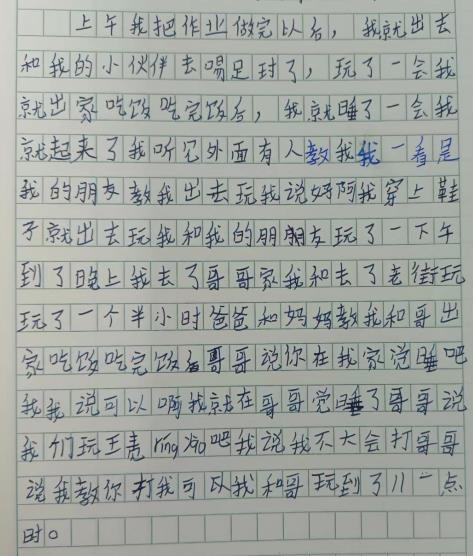 上午我把作业做完以后，我就出去
和我的小伙伴去踢足球了，玩了一会我
就出家吃饭吃完饭后，我就睡了一会我
就起来了我听见外面有人教我我一看是
我的朋友教我出去玩我说好阿我穿上鞋
子就出去玩我和我的朋朋友玩了一下午
到了晚上我去了哥哥家我和去了老街玩
玩了一个半小时爸爸和妈妈教我和哥出
家吃饭吃完饭后哥哥说你在我家说睡吧
我我说可以啊我就在哥哥觉睡了哥哥说
我们玩王壳ring yao吧我说我不大会打哥哥
说我教你打我可以我和哥玩到了川一点
时。